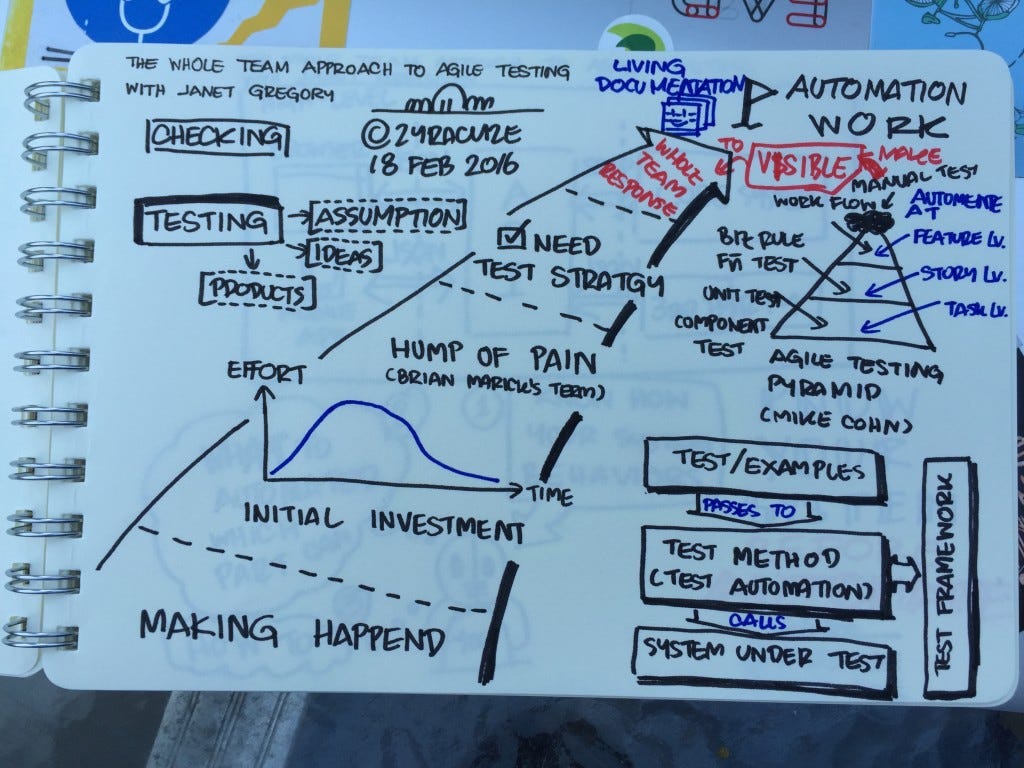 THE WHOLE TEAM APPROACH TO AGILE TESTING
WITH JANET GREGORY
©2YRACUZE
18 FEB 2016
CHECKING
TESTING
ASSUMPTION
IDEAS
PRODUCTS
LIVING
DOCUMENTATION
AUTOMATION
WORK
WHOLE
TEAM
RESPONSE
TO
VISIBLE
MAKE
NEED
TEST STRATGY
HUMP OF PAIN
(BRIAN MARICK'S TERM)
EFFORT
TIME
INITIAL INVESTMENT
MAKING HAPPEND
MANUAL TEST
WORK FLOW
AUTOMENTE
AT
FEATURE LV.
STORY LV.
TASK LV.
RULE
TEST
UNIT TEST
COMPONENT
TEST
AGILE TESTING
PYRAMID
(MIKE COHN)
TEST/EXAMPLES
PASSES TO
TEST METHOD
(TEST AUTOMATION)
CALLS
SYSTEM UNDER TEST
TEST FRAMEWORK